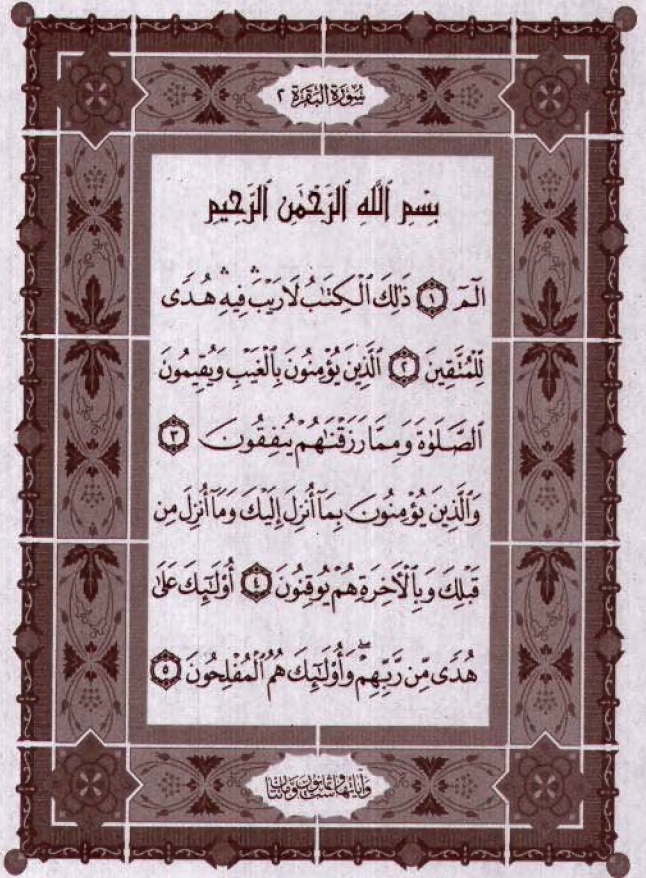 سُورَةُ البَقَرَةِ ٢
بِسْمِ ٱللَّهِ ٱلرَّحْمَٰنِ ٱلرَّحِيمِ
الٓمٓ ١ ذَٰلِكَ ٱلْكِتَٰبُ لَا رَيْبَ ۛ فِيهِ ۛ هُدًى
لِّلْمُتَّقِينَ ٢ ٱلَّذِينَ يُؤْمِنُونَ بِٱلْغَيْبِ وَيُقِيمُونَ
ٱلصَّلَوٰةَ وَمِمَّا رَزَقْنَٰهُمْ يُنفِقُونَ ٣
وَٱلَّذِينَ يُؤْمِنُونَ بِمَآ أُنزِلَ إِلَيْكَ وَمَآ أُنزِلَ مِن
قَبْلِكَ وَبِٱلْءَاخِرَةِ هُمْ يُوقِنُونَ ٤ أُو۟لَٰٓئِكَ عَلَىٰ
هُدًى مِّن رَّبِّهِمْ ۖ وَأُو۟لَٰٓئِكَ هُمُ ٱلْمُفْلِحُونَ ٥
وَآيَاتُهَا سِتٌّ وَثَمَانُونَ وَمِائَتَانِ